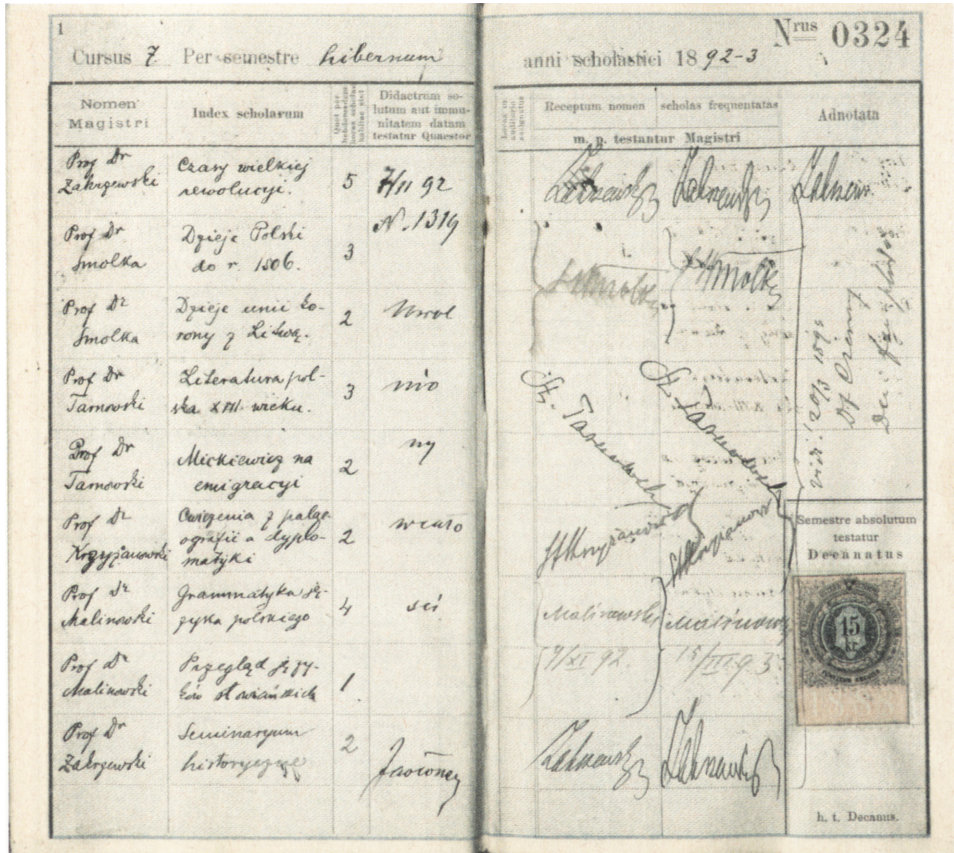 1
Nrus 0324
Cursus 7 Per semestre hibernum anni scholastici 1892-3
Nomen Magistri
Index scholarum
Quot per hebdomadem horas scholae habitae sint
Didactrum solutum aut immunitatem datam testatur Quaestor
Locus in auditorio assignatus
Receptum nomen
scholas frequentatas
m. p. testantur Magistri
Adnotata
Prof Dr
Zakrzewski
Czasy wielkiej
rewolucyi.
5
7/11 92
N. 1319
Zakrzewski
Zakrzewski
Zakrzew
Prof Dr
Smolka
Dzieje Polski
do r. 1506.
3
Smolka
Smolka
Prof Dr
Smolka
Dzieje unii Ko-
rony z Litwą.
2
Uwol
Prof Dr
Tarnowski
Literatura pol-
ska XVII. wieku.
3
nio
St. Tarnowski
St. Tarnowski
Prof Dr
Tarnowski
Mickiewicz na
emigracyi
2
ny
vidi! 20/3 189
Prof Dr
Krzyżanowski
Cwiczenia z pale-
ografii a dyplo-
matyki
2
St Krzyżanowski
St Krzyżanowski
Semestre absolutum
testatur
Decanatus
Prof Dr
Malinowski
Grammatyka ję-
zyka polskiego
4
Malinowski
Malinowski
9/XI 92.
15/III 93
15
Kr
Prof Dr
Malinowski
Przegląd języ-
ków słowiańskich
1
Prof Dr
Zakrzewski
Seminaryum
historyczne
2
Zakrzewski
Zakrzewski
h. t. Decanus.